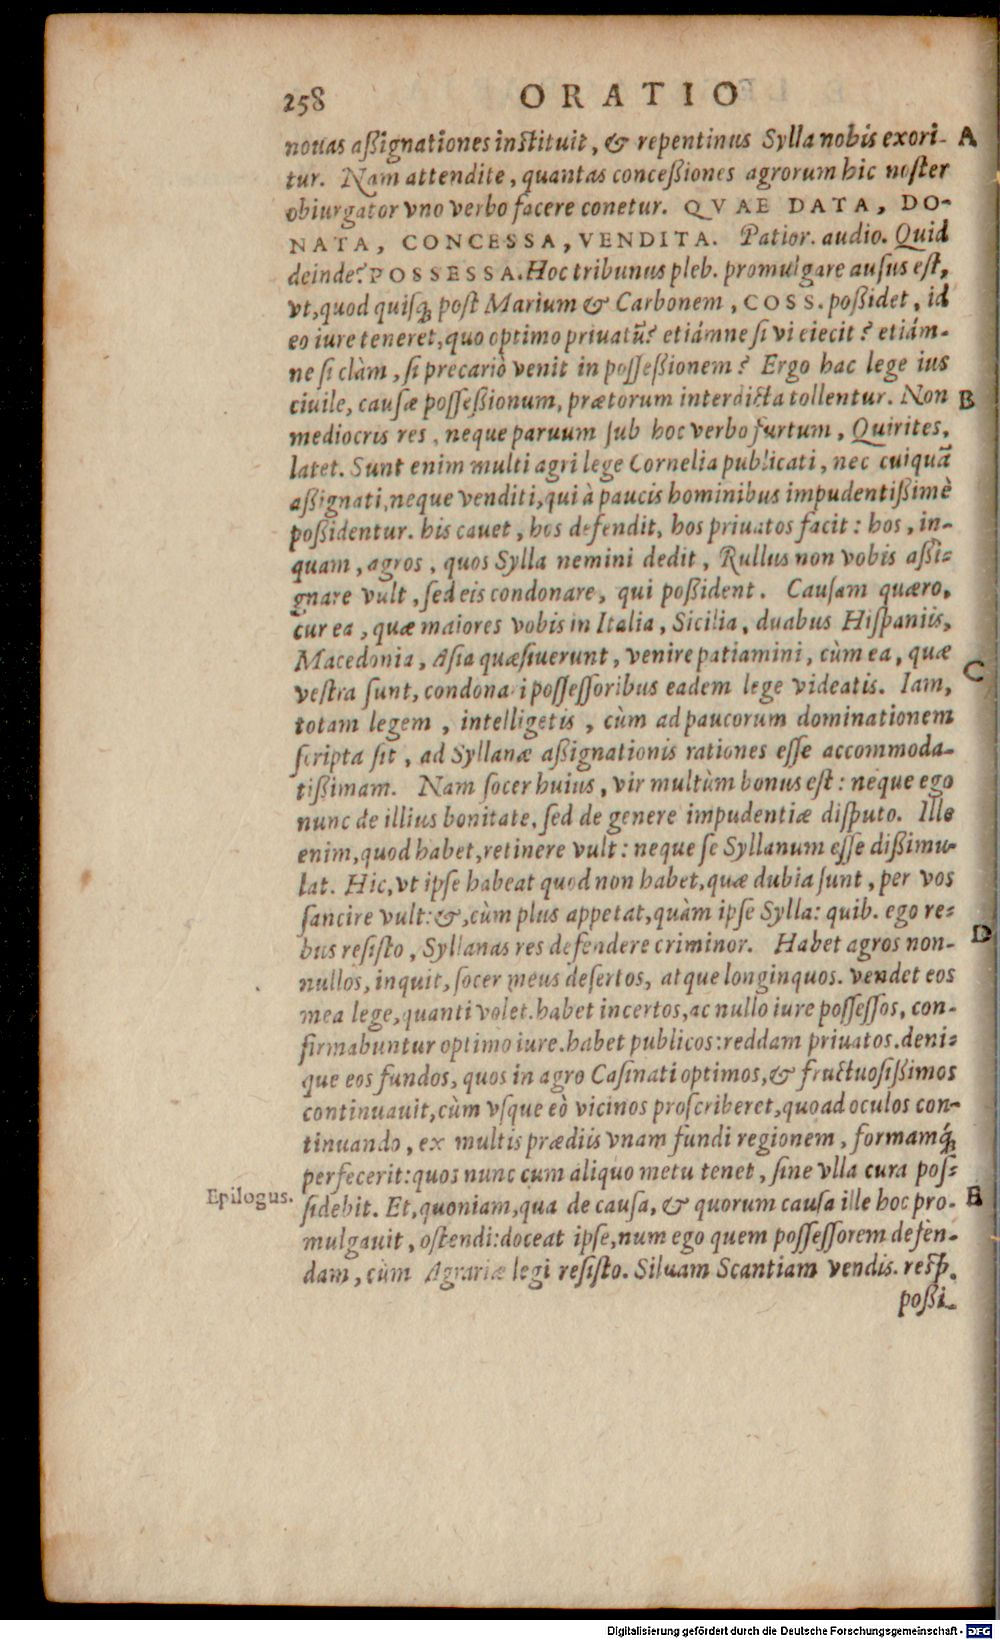 258 ORATIO
nouas aßignationes instituit, & repentinus Sylla nobis exori- A
tur. Nam attendite, quantas conceßiones agrorum hic noster
obiurgator vno verbo facere conetur. QVAE DATA, DO-
NATA, CONCESSA, VENDITA. Patior. audio. Quid
deinde? POSSESSA. Hoc tribunus pleb. promulgare ausus est,
vt, quod quisq; post Marium & Carbonem, COSS. poßidet, id
eo iure teneret, quo optimo priuatũ? etiámne si vi eiecit? etiám-
ne si clàm, si precariò venit in posseßionem? Ergo hac lege ius
ciuile, causæ posseßionum, prætorum interdicta tollentur. Non B
mediocris res, neque paruum sub hoc verbo furtum, Quirites,
latet. Sunt enim multi agri lege Cornelia publicati, nec cuiquã
aßignati, neque venditi, qui à paucis hominibus impudentißimè
poßidentur. his cauet, hos defendit, hos priuatos facit: hos, in-
quam, agros, quos Sylla nemini dedit, Rullus non vobis aßi-
gnare vult, sed eis condonare, qui poßident. Causam quæro,
cur ea, quæ maiores vobis in Italia, Sicilia, duabus Hispaniis,
Macedonia, Asia quæsiuerunt, venire patiamini, cùm ea, quæ
vestra sunt, condonari possessoribus eadem lege videatis. Iam, C
totam legem, intelligetis, cùm ad paucorum dominationem
scripta sit, ad Syllanæ aßignationis rationes esse accommoda-
tißimam. Nam socer huius, vir multùm bonus est: neque ego
nunc de illius bonitate, sed de genere impudentiæ disputo. Ille
enim, quod habet, retinere vult: neque se Syllanum esse dißimu-
lat. Hic, vt ipse habeat quod non habet, quæ dubia sunt, per vos
sancire vult: &, cùm plus appetat, quàm ipse Sylla: quib. ego re-
bus resisto, Syllanas res defendere criminor. Habet agros non- D
nullos, inquit, socer meus desertos, atque longinquos. vendet eos
mea lege, quanti volet. habet incertos, ac nullo iure possessos, con-
firmabuntur optimo iure. habet publicos: reddam priuatos. deni-
que eos fundos, quos in agro Casinati optimos, & fructuosißimos
continuauit, cùm vsque eò vicinos proscriberet, quoad oculos con-
tinuando, ex multis prædiis vnam fundi regionem, formamq́;
perfecerit: quos nunc cum aliquo metu tenet, sine vlla cura pos-
Epilogus. sidebit. Et, quoniam, qua de causa, & quorum causa ille hoc pro- E
mulgauit, ostendi: doceat ipse, num ego quem possessorem defen-
dam, cùm Agrariæ legi resisto. Siluam Scantiam vendis. resp.
poßi-
Digitalisierung gefördert durch die Deutsche Forschungsgemeinschaft - DFG